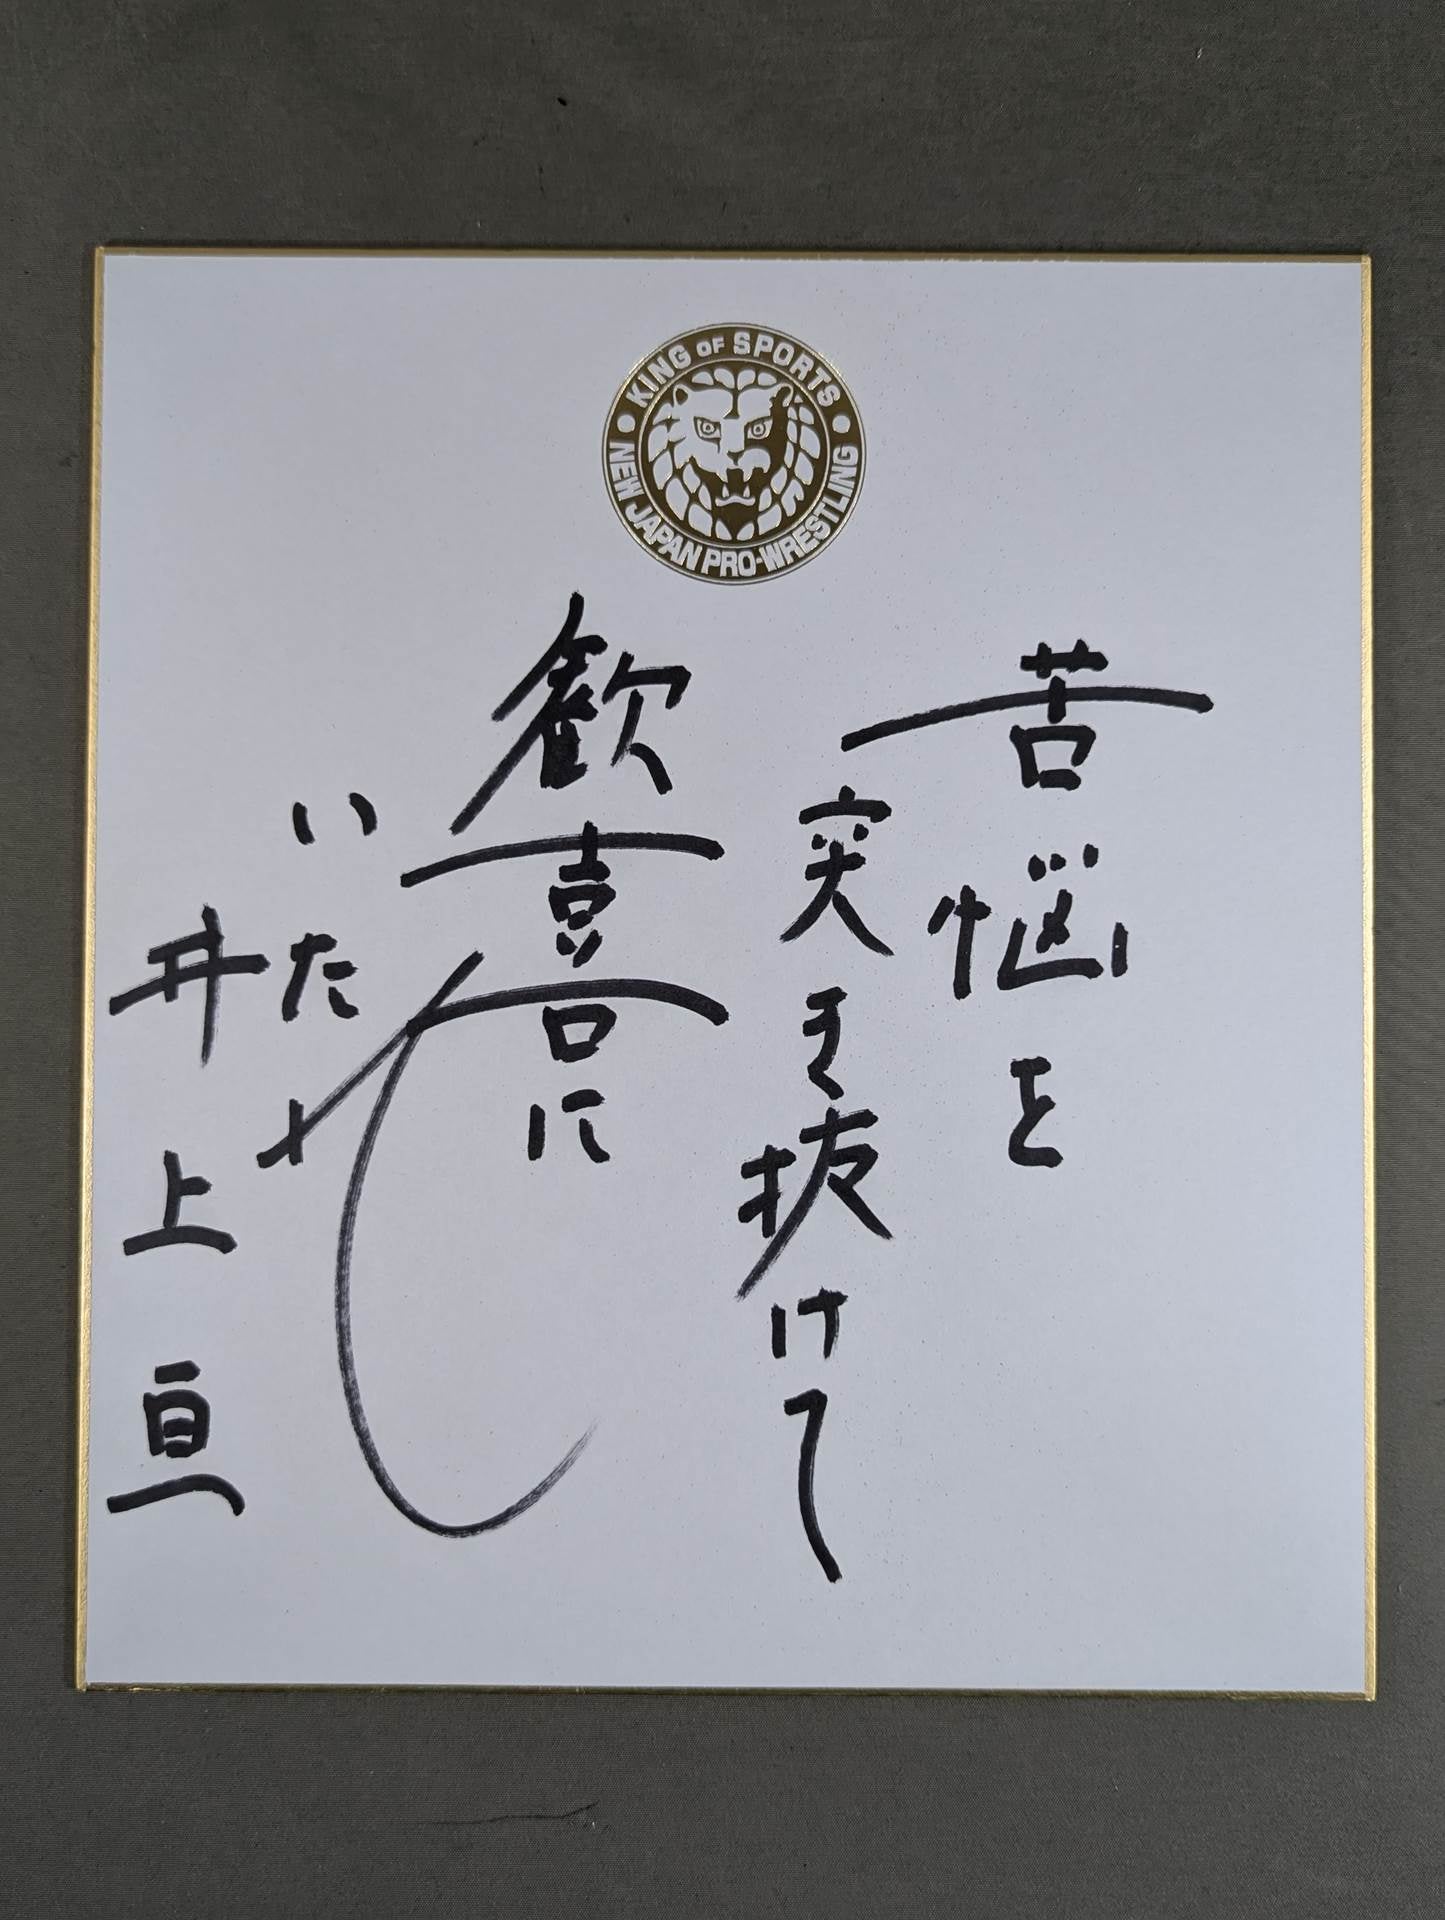 KING OF SPORTS
NEW JAPAN PRO-WRESTLING
苦悩を
突き抜けて
歓喜に
いたれ
井上亘